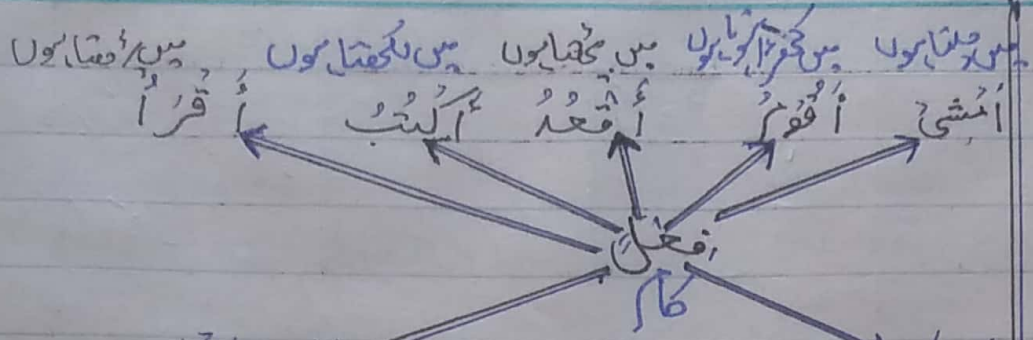 میں چلتا ہوں میں کھڑا ہوتا ہوں میں بیٹھتا ہوں میں لکھتا ہوں میں پڑھتا ہوں
أَمْشِیْ أَقُوْمُ أَقْعُدُ أَكْتُبُ أَقْرَأُ
افعل
کام